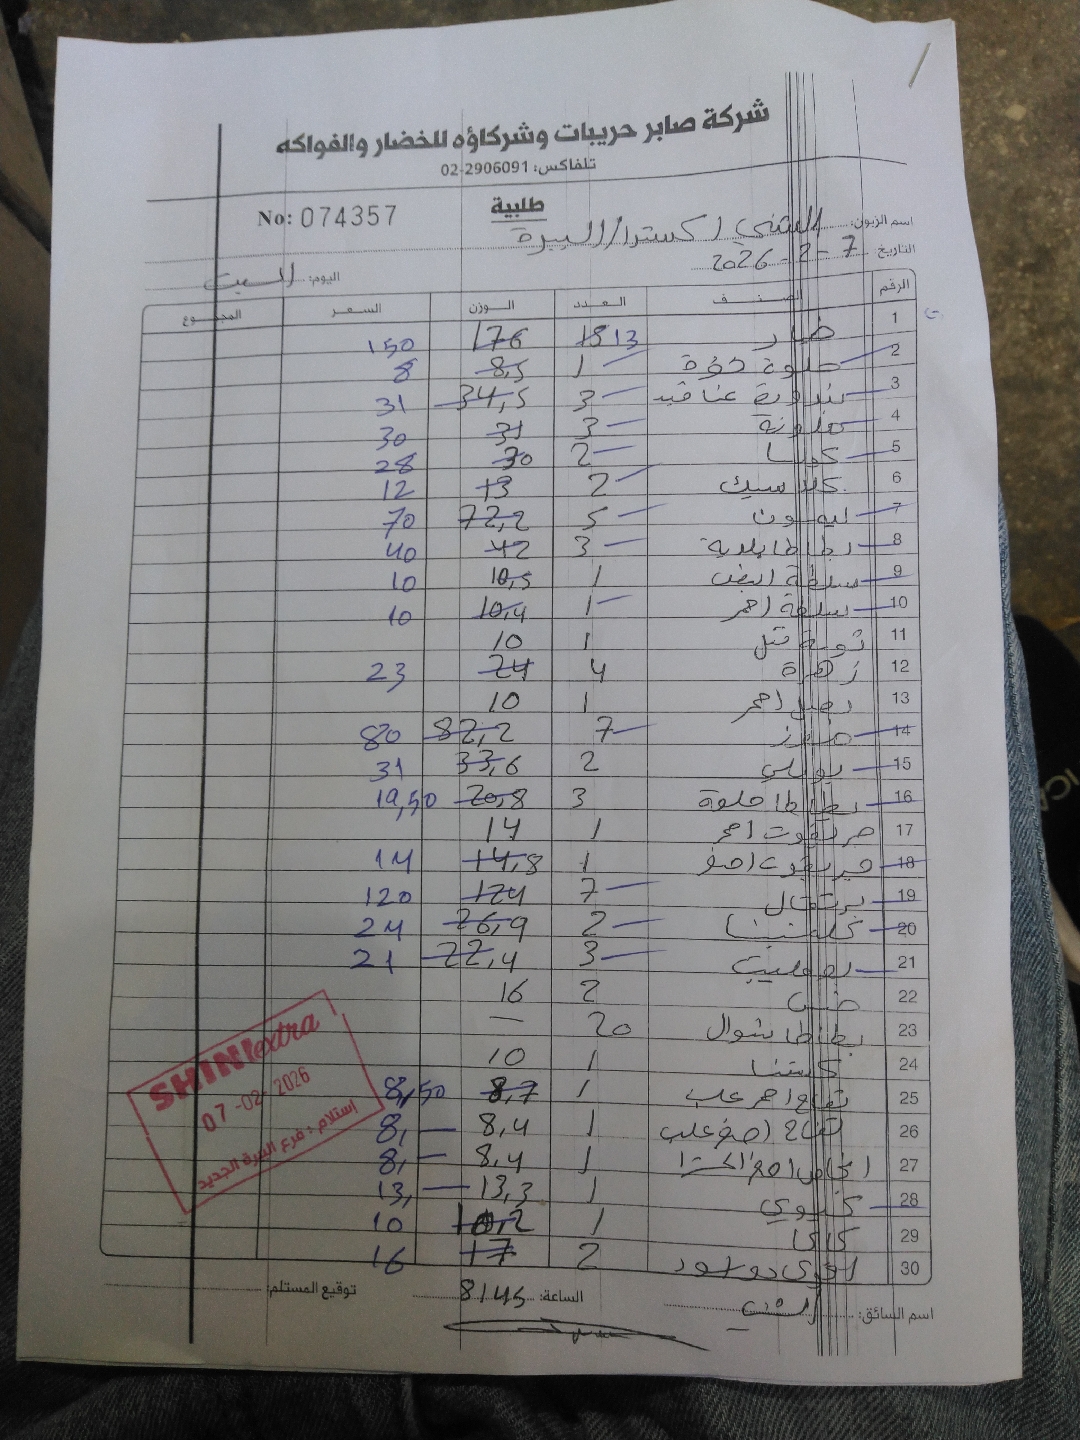 شركة صابر حريبات وشركاؤه للخضار والفواكه
تلفاكس: 02-2906091
طلبية
No: 074357
اسم الزبون: الشني اكسترا/البيرة
التاريخ: 7-2-2026
اليوم: السبت
الرقم الصنف العدد الوزن السعر المجموع
1 خيار 13 176 150
2 حلوة 1 8,5 8
3 بندورة عناقيد 3 34,5 31
4 3 31 30
5 كوسا 2 30 28
6 كلاسيك 2 13 12
7 ليمون 5 72,2 70
8 بطاطا بلدية 3 42 40
9 سلطة ابيض 1 10,5 10
10 سلطة احمر 1 10,4 10
11 1 10
12 زهرة 4 24 23
13 بصل احمر 1 10
14 7 82,2 80
15 بوملي 2 33,6 31
16 بطاطا حلوة 3 20,8 19,50
17 احمر 1 14
18 1 14,8 14
19 برتقال 7 124 120
20 كلمنتينا 2 26,9 24
21 3 22,4 21
22 خس 2 16
23 بطاطا شوال 20 —
24 كستنا 1 10
25 تفاح احمر علب 1 8,7 8,50
26 تفاح اصفر علب 1 8,4 8,—
27 1 8,4 8,—
28 كيوي 1 13,3 13,—
29 كاكا 1 10,2 10
30 2 17 16
SHINI extra
07-02-2026
استلام: فرع البيرة الجديد
اسم السائق: الساعة: 8:45 توقيع المستلم: